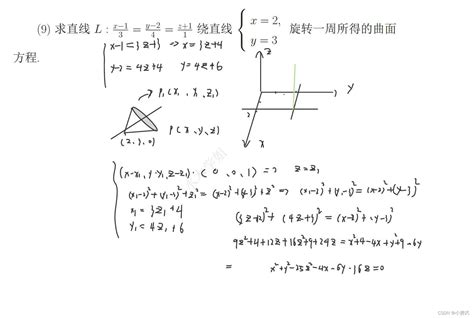 (9) 求直线 L : \frac{x-1}{3} = \frac{y-2}{4} = \frac{z+1}{1} 绕直线 { x = 2, y = 3 旋转一周所得的曲面
方程.
x-1=3z+3 => x=3z+4
y-2=4z+4 y=4z+6
z
y
x
2
P₁(x₁, y₁, z₁)
(2,3,0)
P(x, y, z)
(x-x₁, y-y₁, z-z₁)·(0, 0, 1) => z=z₁
(x₁-2)²+(y₁-3)²+z₁²=(x-2)²+(y-3)²+z² => (x₁-2)²+(y₁-3)²=(x-2)²+(y-3)²
x₁=3z₁+4
y₁=4z₁+6
(3z+2)²+(4z+3)²=(x-2)²+(y-3)²
9z²+4+12z+16z²+9+24z=x²+4-4x+y²+9-6y
= x²+y²-25z²-4x-6y-36z=0